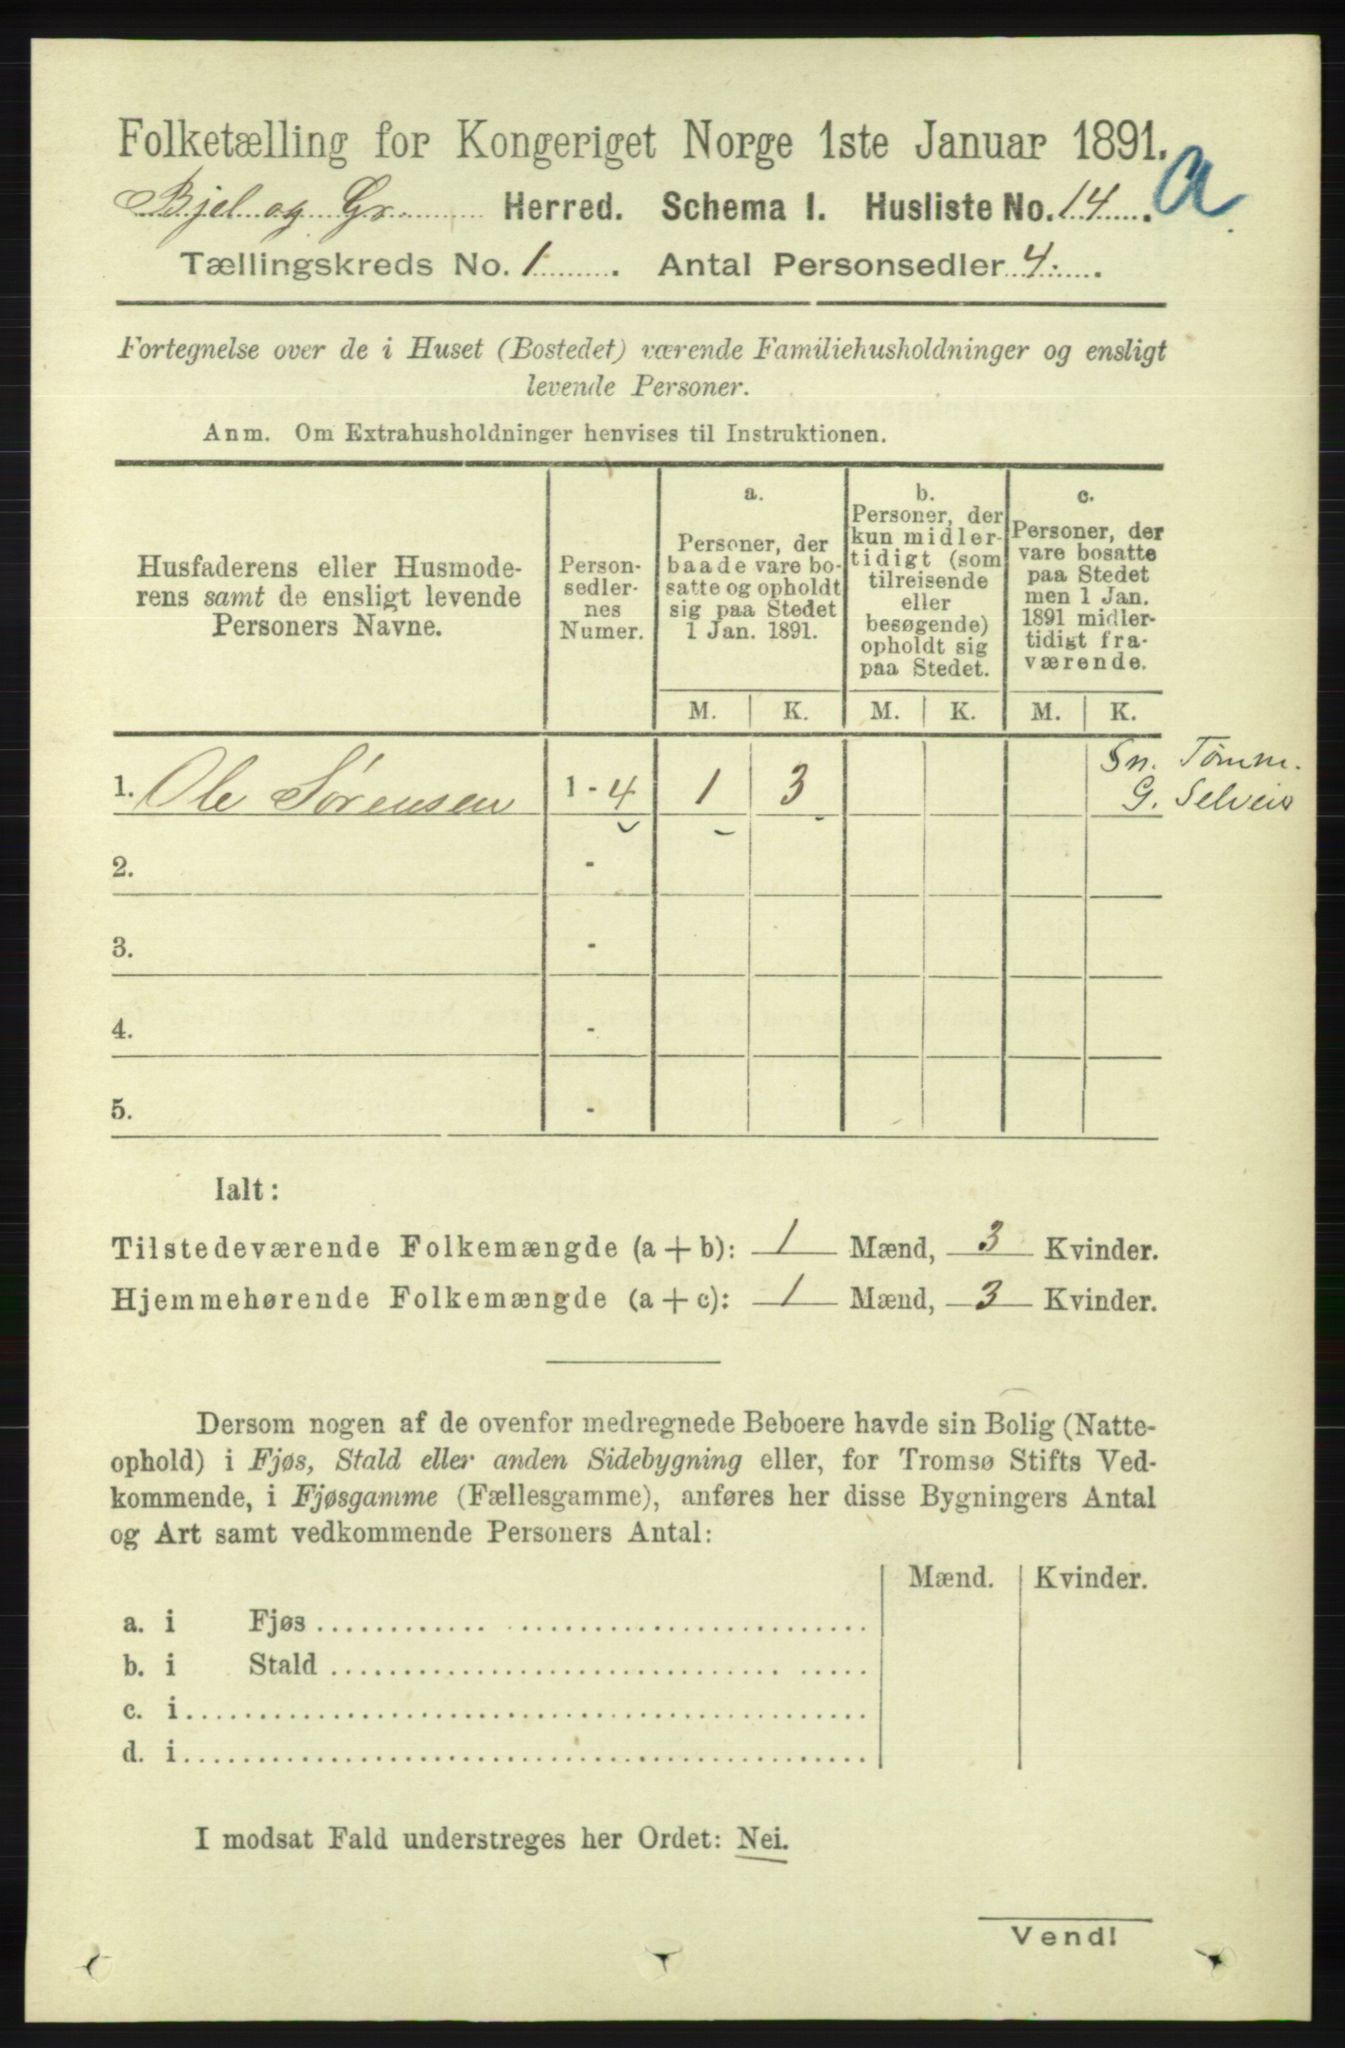 Folketælling for Kongeriget Norge 1ste Januar 1891.
Bjel og Gr. Herred. Schema I. Husliste No. 14. a
Tællingskreds No. 1. Antal Personsedler 4.
Fortegnelse over de i Huset (Bostedet) værende Familiehusholdninger og ensligt
levende Personer.
Anm. Om Extrahusholdninger henvises til Instruktionen.
Husfaderens eller Husmode-
rens samt de ensligt levende
Personers Navne.
Person-
sedler-
nes
Numer.
a.
Personer, der
baade vare bo-
satte og opholdt
sig paa Stedet
1 Jan. 1891.
b.
Personer, der
kun midler-
tidigt (som
tilreisende
eller
besøgende)
opholdt sig
paa Stedet.
c.
Personer, der
vare bosatte
paa Stedet
men 1 Jan.
1891 midler-
tidigt fra-
værende.
M. K. M. K. M. K.
Sn. Tømm.
1. Ole Sørensen 1 - 4 1 3 G. Selveier
2. -
3. -
4. -
5. -
Ialt:
Tilstedeværende Folkemængde (a + b): 1 Mænd, 3 Kvinder.
Hjemmehørende Folkemængde (a + c): 1 Mænd, 3 Kvinder.
Dersom nogen af de ovenfor medregnede Beboere havde sin Bolig (Natte-
ophold) i Fjøs, Stald eller anden Sidebygning eller, for Tromsø Stifts Ved-
kommende, i Fjøsgamme (Fællesgamme), anføres her disse Bygningers Antal
og Art samt vedkommende Personers Antal:
Mænd. Kvinder.
a. i Fjøs
b. i Stald
c. i
d. i
I modsat Fald understreges her Ordet: Nei.
Vend!